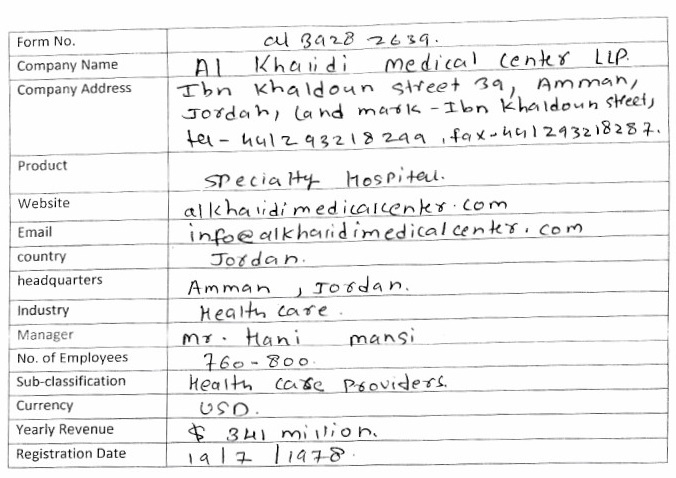 Form No. cu 3928-2639.
Company Name Al Khaiidi medical center LLP.
Company Address Ibn Khaldoun street 39, Amman,
Jordan, land mark - Ibn Khaldoun street,
tel - 441293218299, fax-441293218287.
Product
specialty Hospital.
Website alkhaiidimedicalcenter.com
Email info@alkhaiidimedicalcenter.com
country Jordan.
headquarters Amman, Jordan.
Industry Health care.
Manager mr. Hani mansi
No. of Employees 760-800.
Sub-classification Health care Providers.
Currency USD.
Yearly Revenue $ 341 million.
Registration Date 19/7/1978.